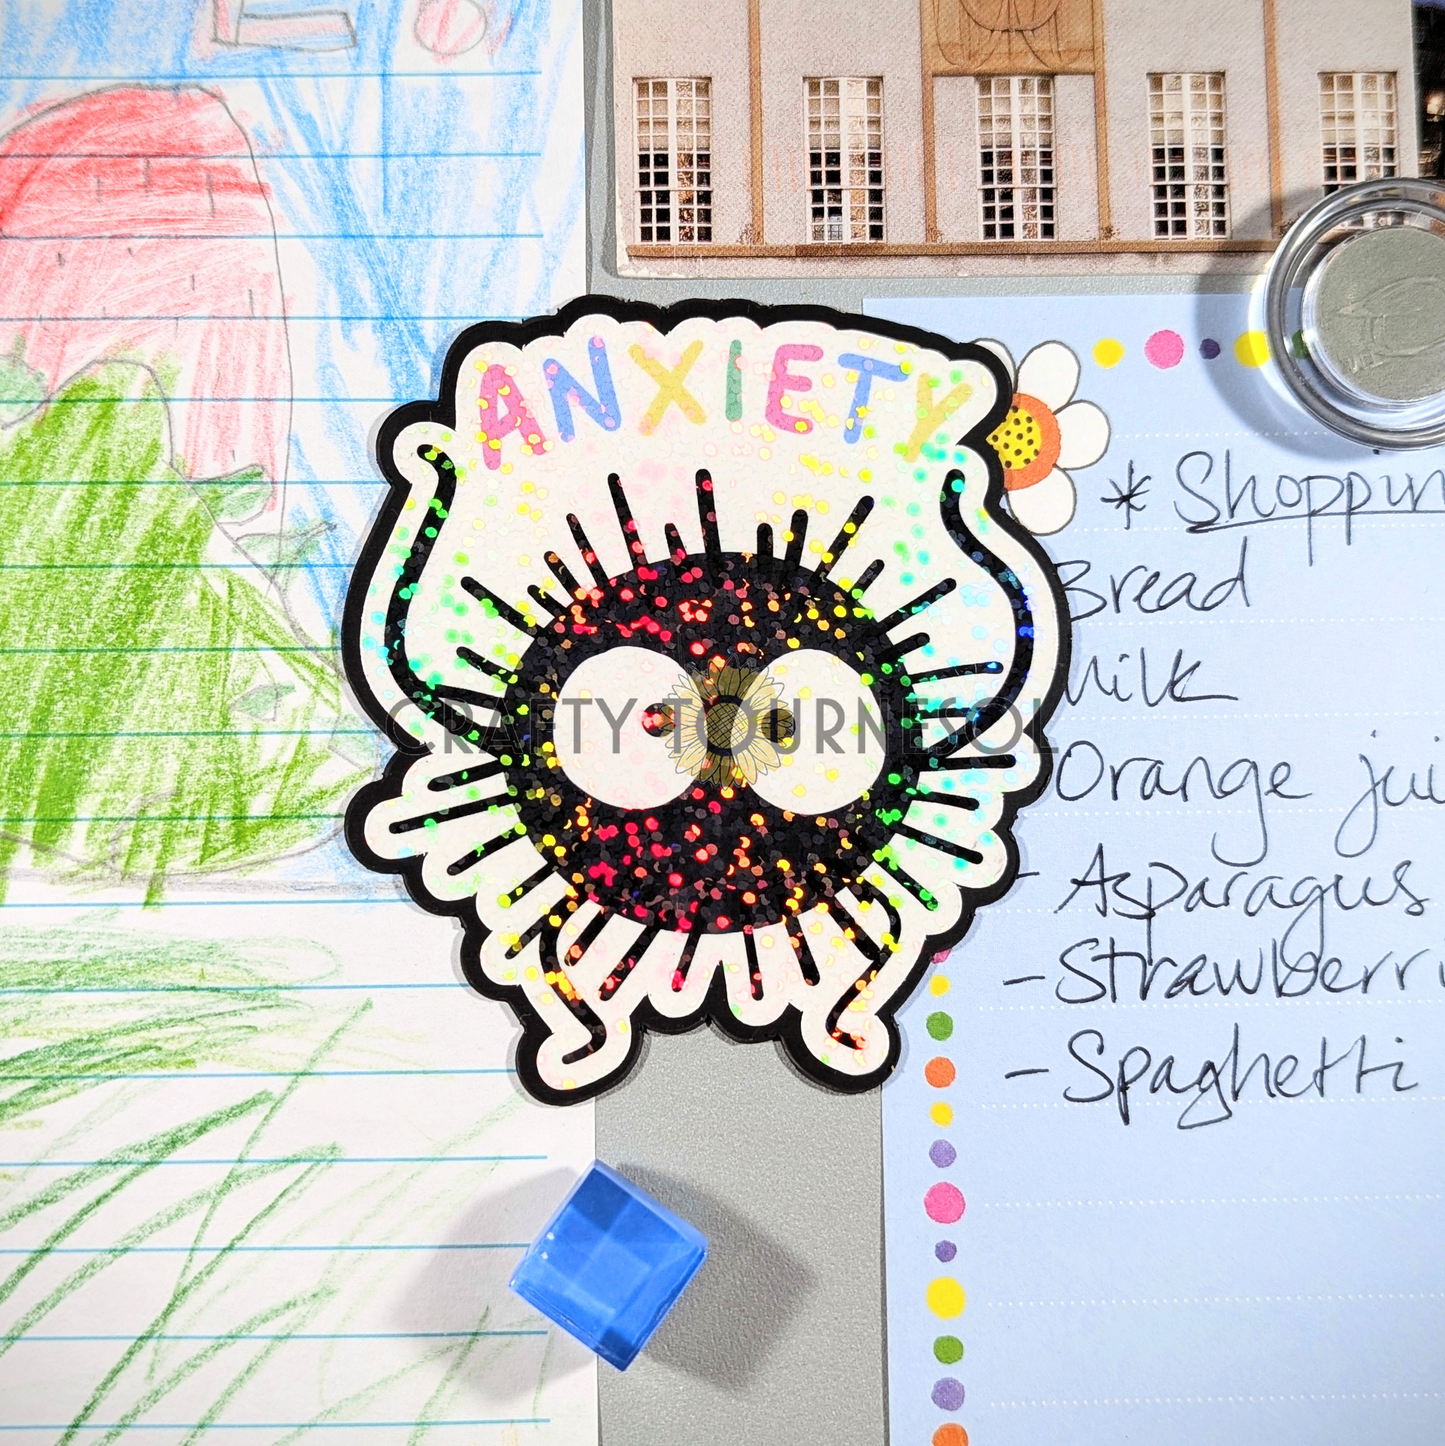 ANXIETY
CRAFTY TOURNESOL
* Shoppin
Bread
Milk
Orange jui
- Asparagus
- Strawberr
- Spaghetti